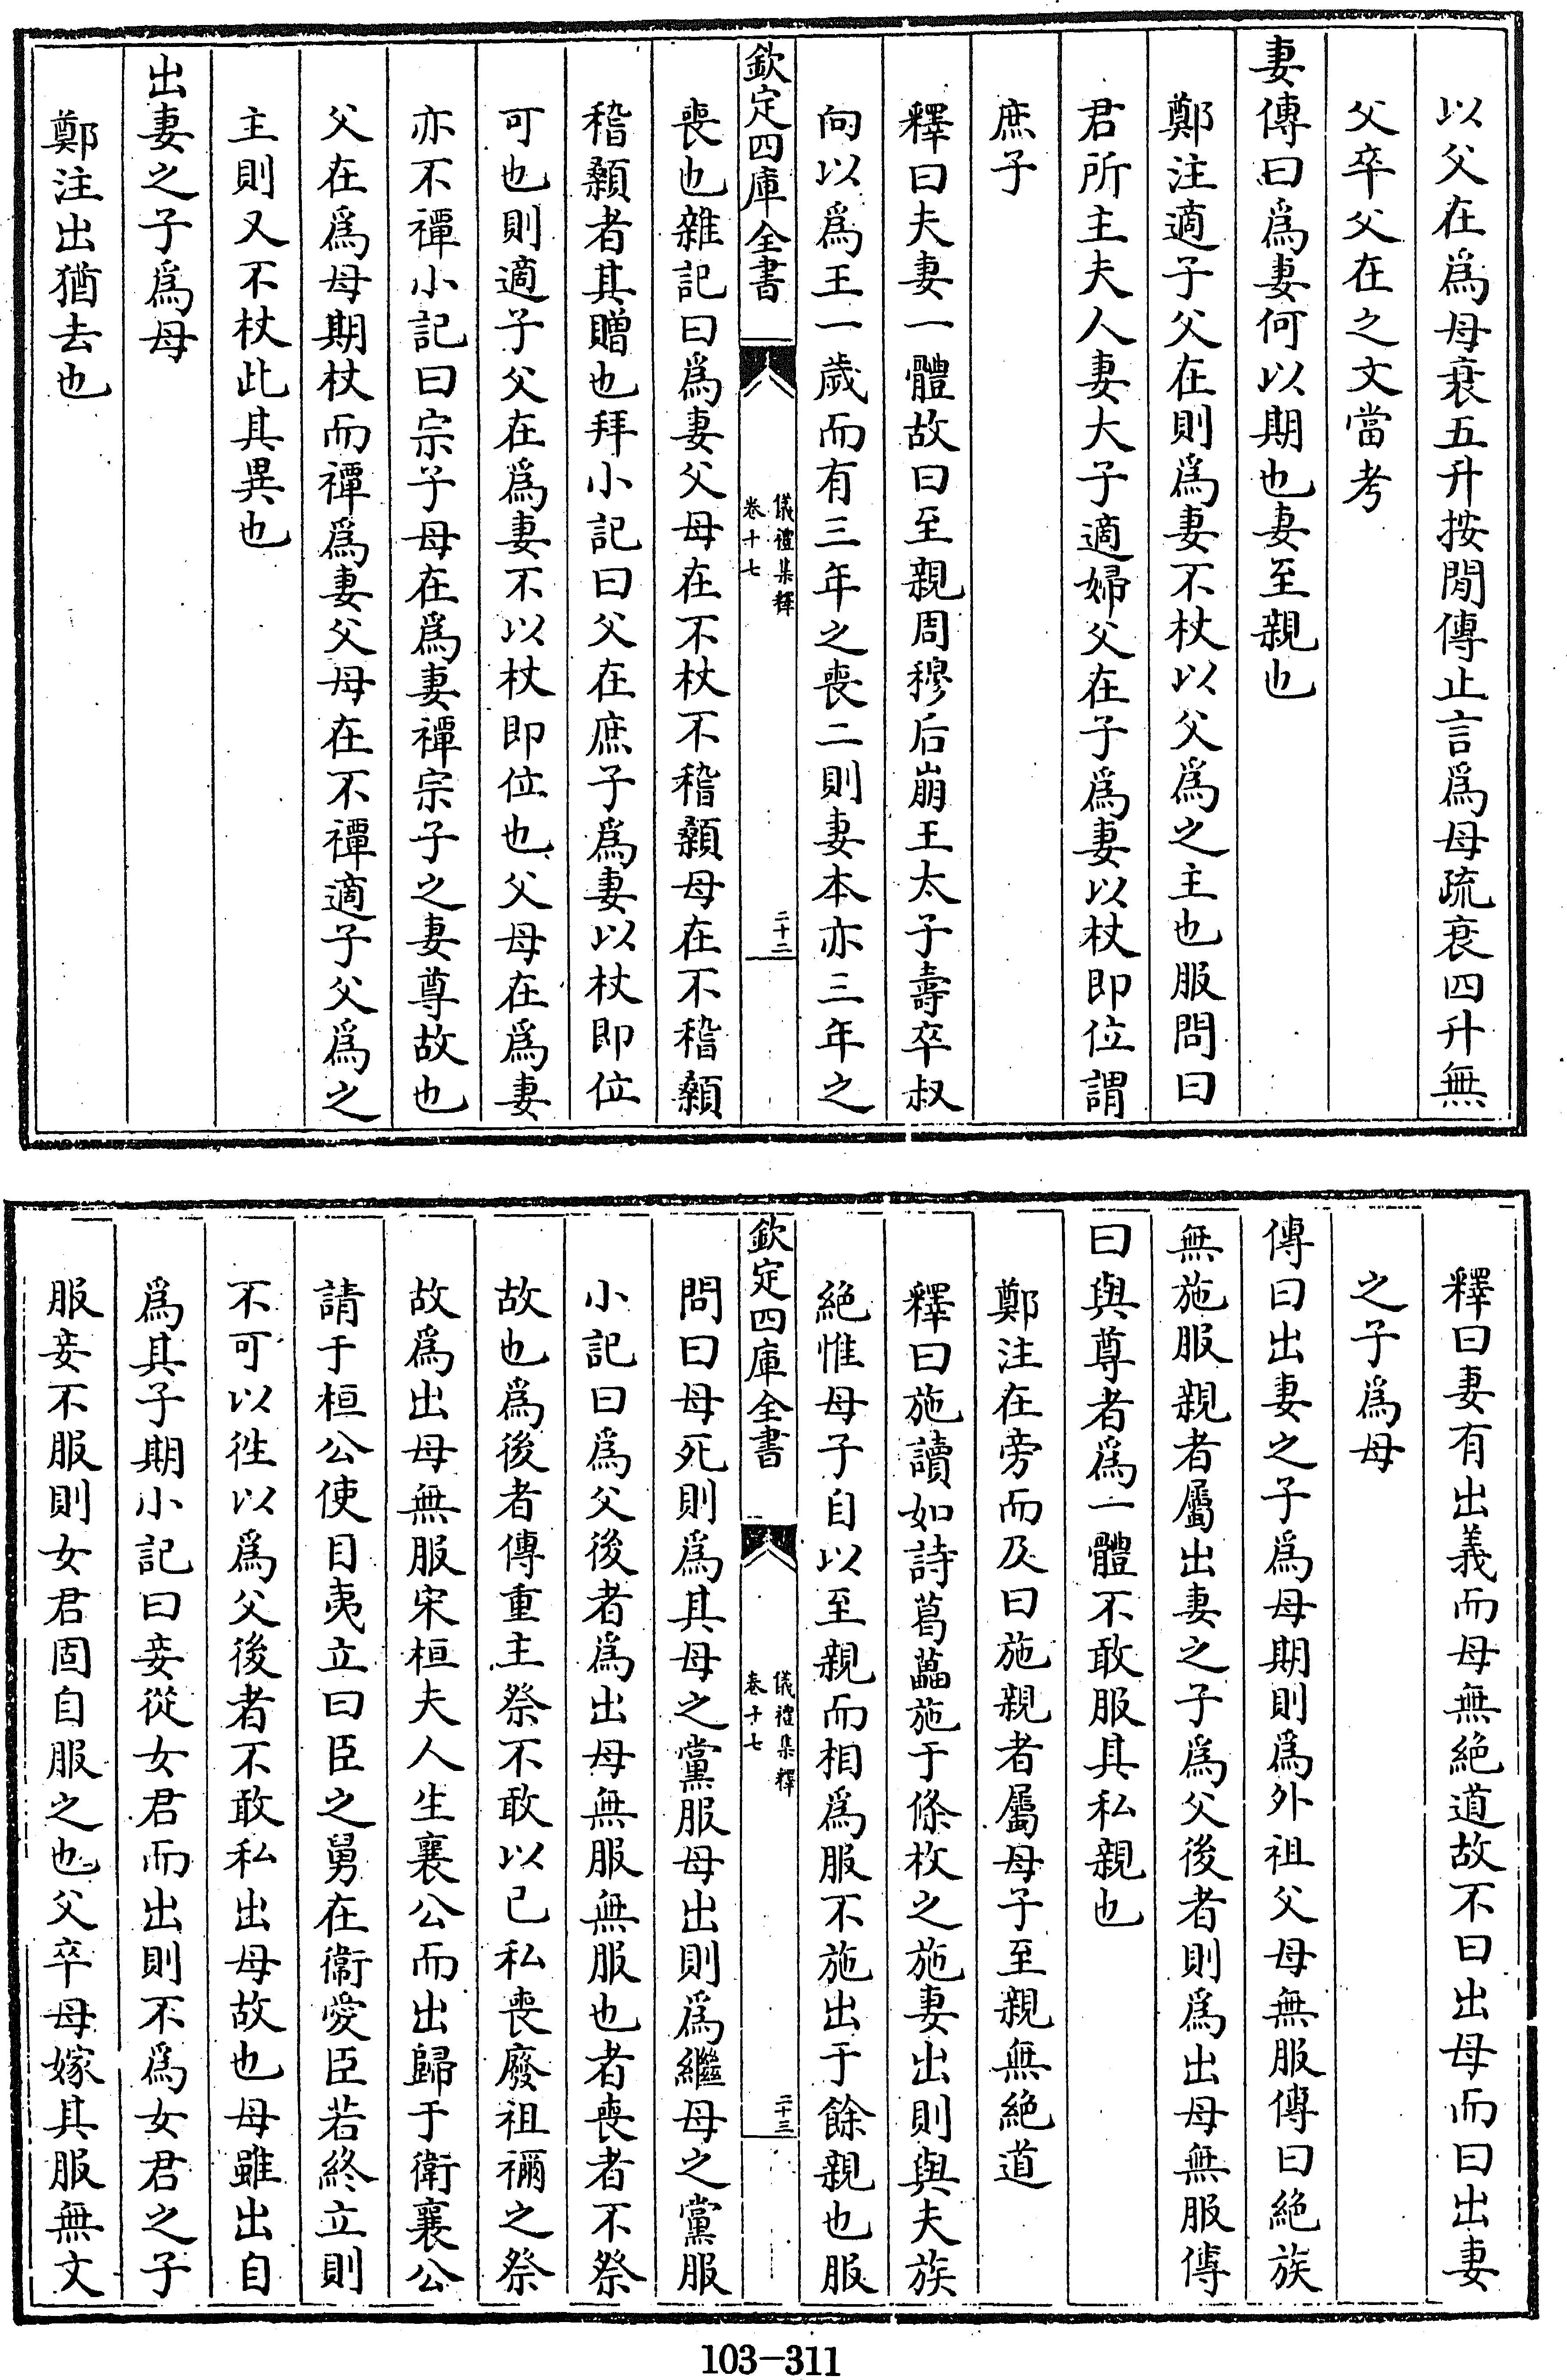 以父在爲母衰五升按閒傳止言爲母疏衰四升無
父卒父在之文當考
妻傳曰爲妻何以期也妻至親也
鄭注適子父在則爲妻不杖以父爲之主也服問曰
君所主夫人妻大子適婦父在子爲妻以杖即位謂
庶子
釋曰夫妻一體故曰至親周穆后崩王太子壽卒叔
向以爲王一歲而有三年之喪二則妻本亦三年之
欽定四庫全書
儀禮集釋
卷十七
二十二
喪也雜記曰爲妻父母在不杖不稽顙母在不稽顙
稽顙者其贈也拜小記曰父在庶子爲妻以杖即位
可也則適子父在爲妻不以杖即位也父母在爲妻
亦不禫小記曰宗子母在爲妻禫宗子之妻尊故也
父在爲母期杖而禫爲妻父母在不禫適子父爲之
主則又不杖此其異也
出妻之子爲母
鄭注出猶去也
釋曰妻有出義而母無絶道故不曰出母而曰出妻
之子爲母
傳曰出妻之子爲母期則爲外祖父母無服傳曰絶族
無施服親者屬出妻之子爲父後者則爲出母無服傳
曰與尊者爲一體不敢服其私親也
鄭注在旁而及曰施親者屬母子至親無絶道
釋曰施讀如詩葛藟施于條枚之施妻出則與夫族
絶惟母子自以至親而相爲服不施出于餘親也服
欽定四庫全書
儀禮集釋
卷十七
二十三
問曰母死則爲其母之黨服母出則爲繼母之黨服
小記曰爲父後者爲出母無服無服也者喪者不祭
故也爲後者傳重主祭不敢以已私喪廢祖禰之祭
故爲出母無服宋桓夫人生襄公而出歸于衛襄公
請于桓公使目夷立曰臣之舅在衞愛臣若終立則
不可以徃以爲父後者不敢私出母故也母雖出自
爲其子期小記曰妾從女君而出則不爲女君之子
服妾不服則女君固自服之也父卒母嫁其服無文
103-311